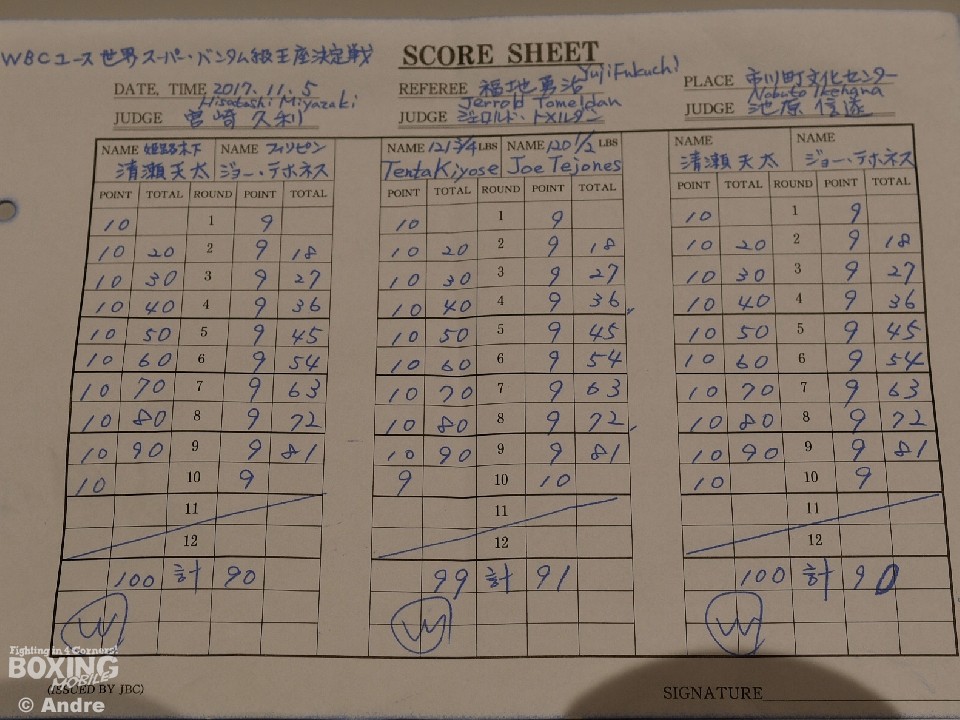 WBCユース世界スーパー・バンタム級王座決定戦
SCORE SHEET
DATE, TIME 2017.11.5
REFEREE 福地勇治 Yuji Fukuchi
PLACE 市川町文化センター
Hisatoshi Miyazaki
JUDGE 宮崎久利
Jerrold Tomeldan
JUDGE ジェロルド・トメルダン
Nobuto Ikehara
JUDGE 池原信遂
NAME 姫路木下 NAME フィリピン
清瀬天太 ジョー・テホネス
POINT TOTAL ROUND POINT TOTAL
10 1 9
10 20 2 9 18
10 30 3 9 27
10 40 4 9 36
10 50 5 9 45
10 60 6 9 54
10 70 7 9 63
10 80 8 9 72
10 90 9 9 81
10 10 9
11
12
100 計 90
W
NAME 121 3/4 LBS NAME 120 1/2 LBS
Tenta Kiyose Joe Tejones
POINT TOTAL ROUND POINT TOTAL
10 1 9
10 20 2 9 18
10 30 3 9 27
10 40 4 9 36
10 50 5 9 45
10 60 6 9 54
10 70 7 9 63
10 80 8 9 72
10 90 9 9 81
9 10 10
11
12
99 計 91
W
NAME NAME
清瀬天太 ジョー・テホネス
POINT TOTAL ROUND POINT TOTAL
10 1 9
10 20 2 9 18
10 30 3 9 27
10 40 4 9 36
10 50 5 9 45
10 60 6 9 54
10 70 7 9 63
10 80 8 9 72
10 90 9 9 81
10 10 9
11
12
100 計 90
W
(ISSUED BY JBC)
SIGNATURE
Fighting in 4 Corners!
BOXING
MOBILE
© Andre